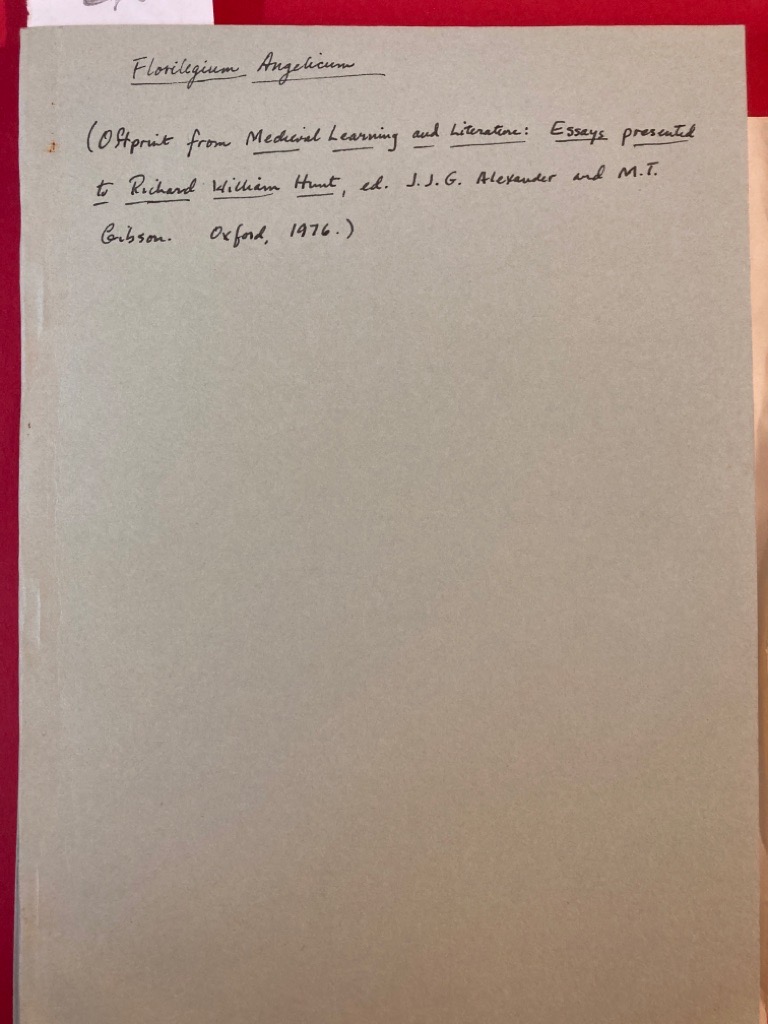 Florilegium Angelicum
(Offprint from Medieval Learning and Literature: Essays presented
to Richard William Hunt, ed. J.J.G. Alexander and M.T.
Gibson. Oxford, 1976.)